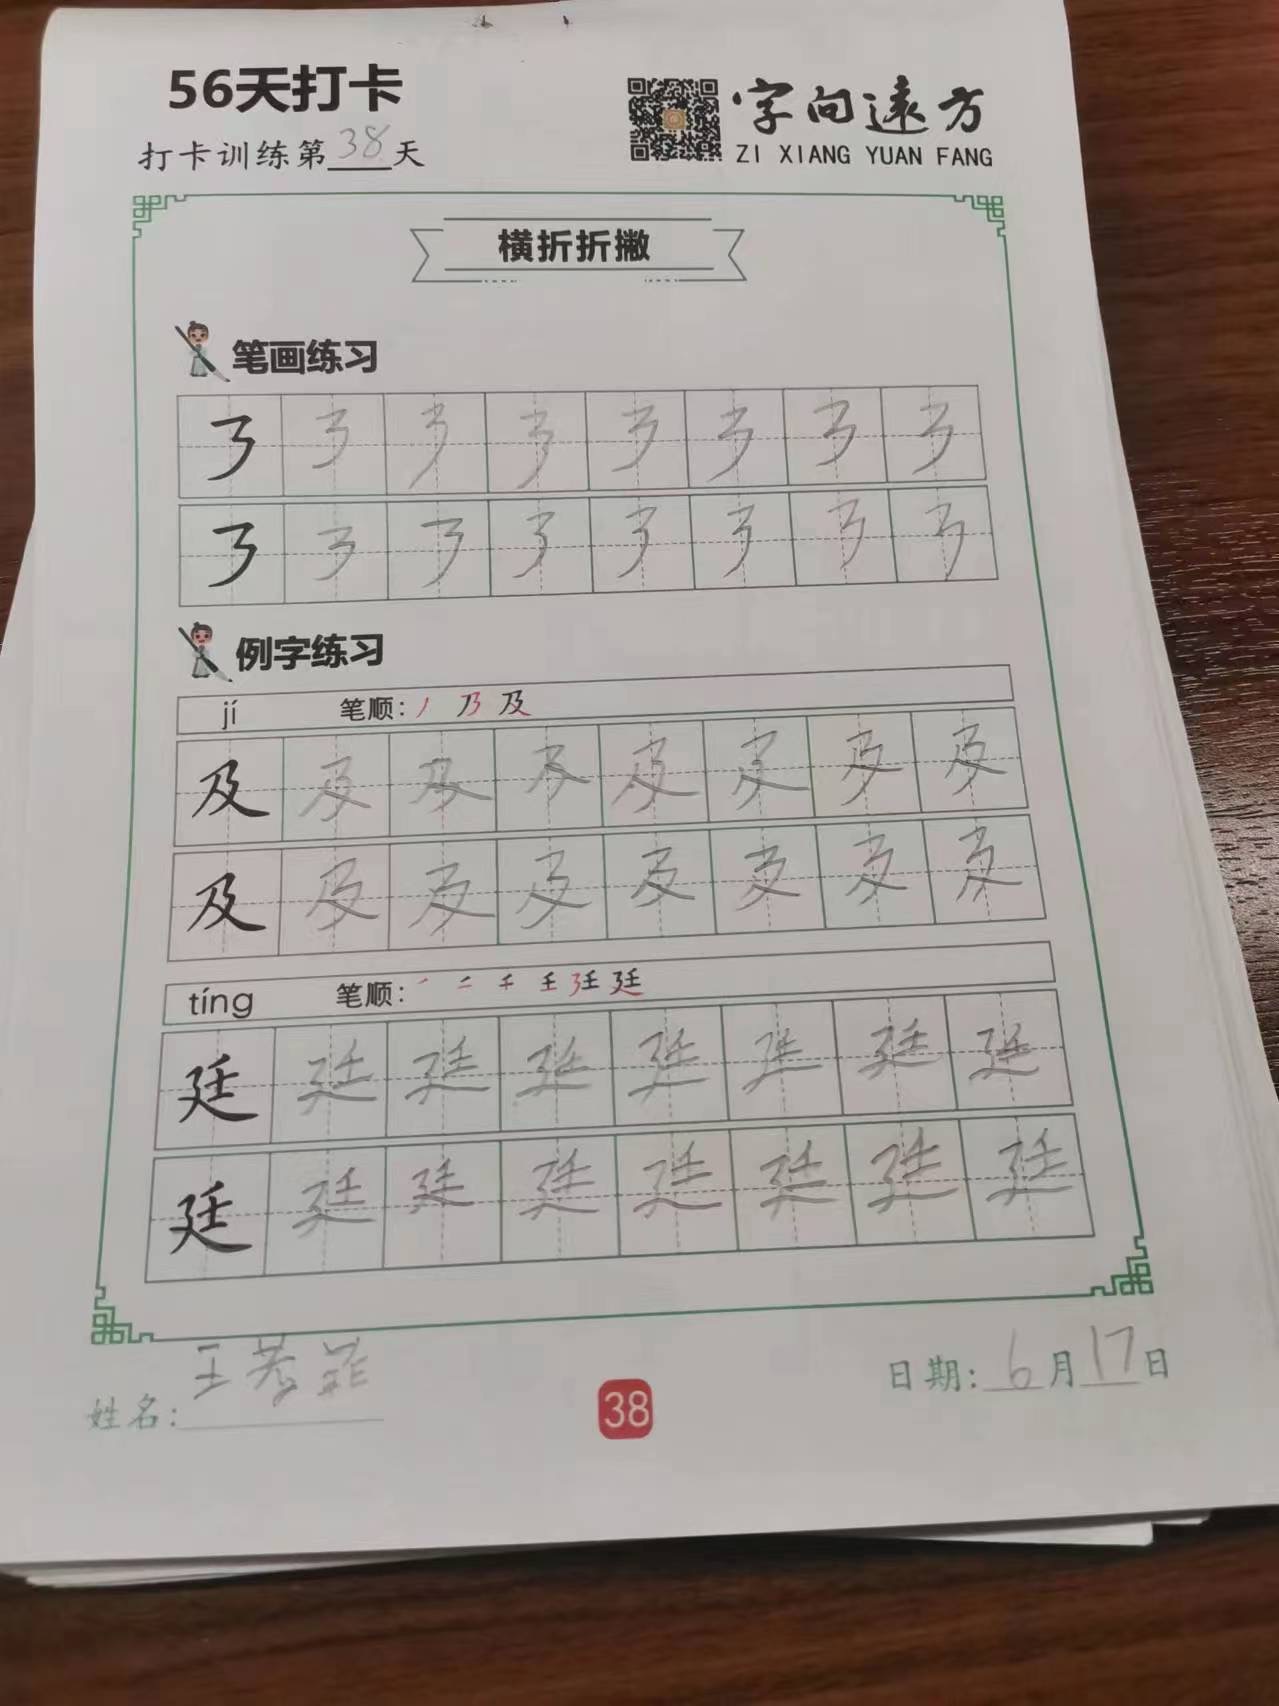 56天打卡
打卡训练第38天
字向远方
ZI XIANG YUAN FANG
横折折撇
笔画练习
㇋ ㇋ ㇋ ㇋ ㇋ ㇋ ㇋ ㇋
㇋ ㇋ ㇋ ㇋ ㇋ ㇋ ㇋ ㇋
例字练习
jí 笔顺：丿 乃 及
及 及 及 及 及 及 及 及
及 及 及 及 及 及 及 及
tíng 笔顺：
廷 廷 廷 廷 廷 廷 廷 廷
廷 廷 廷 廷 廷 廷 廷 廷
姓名：王若菲
38
日期：6月17日